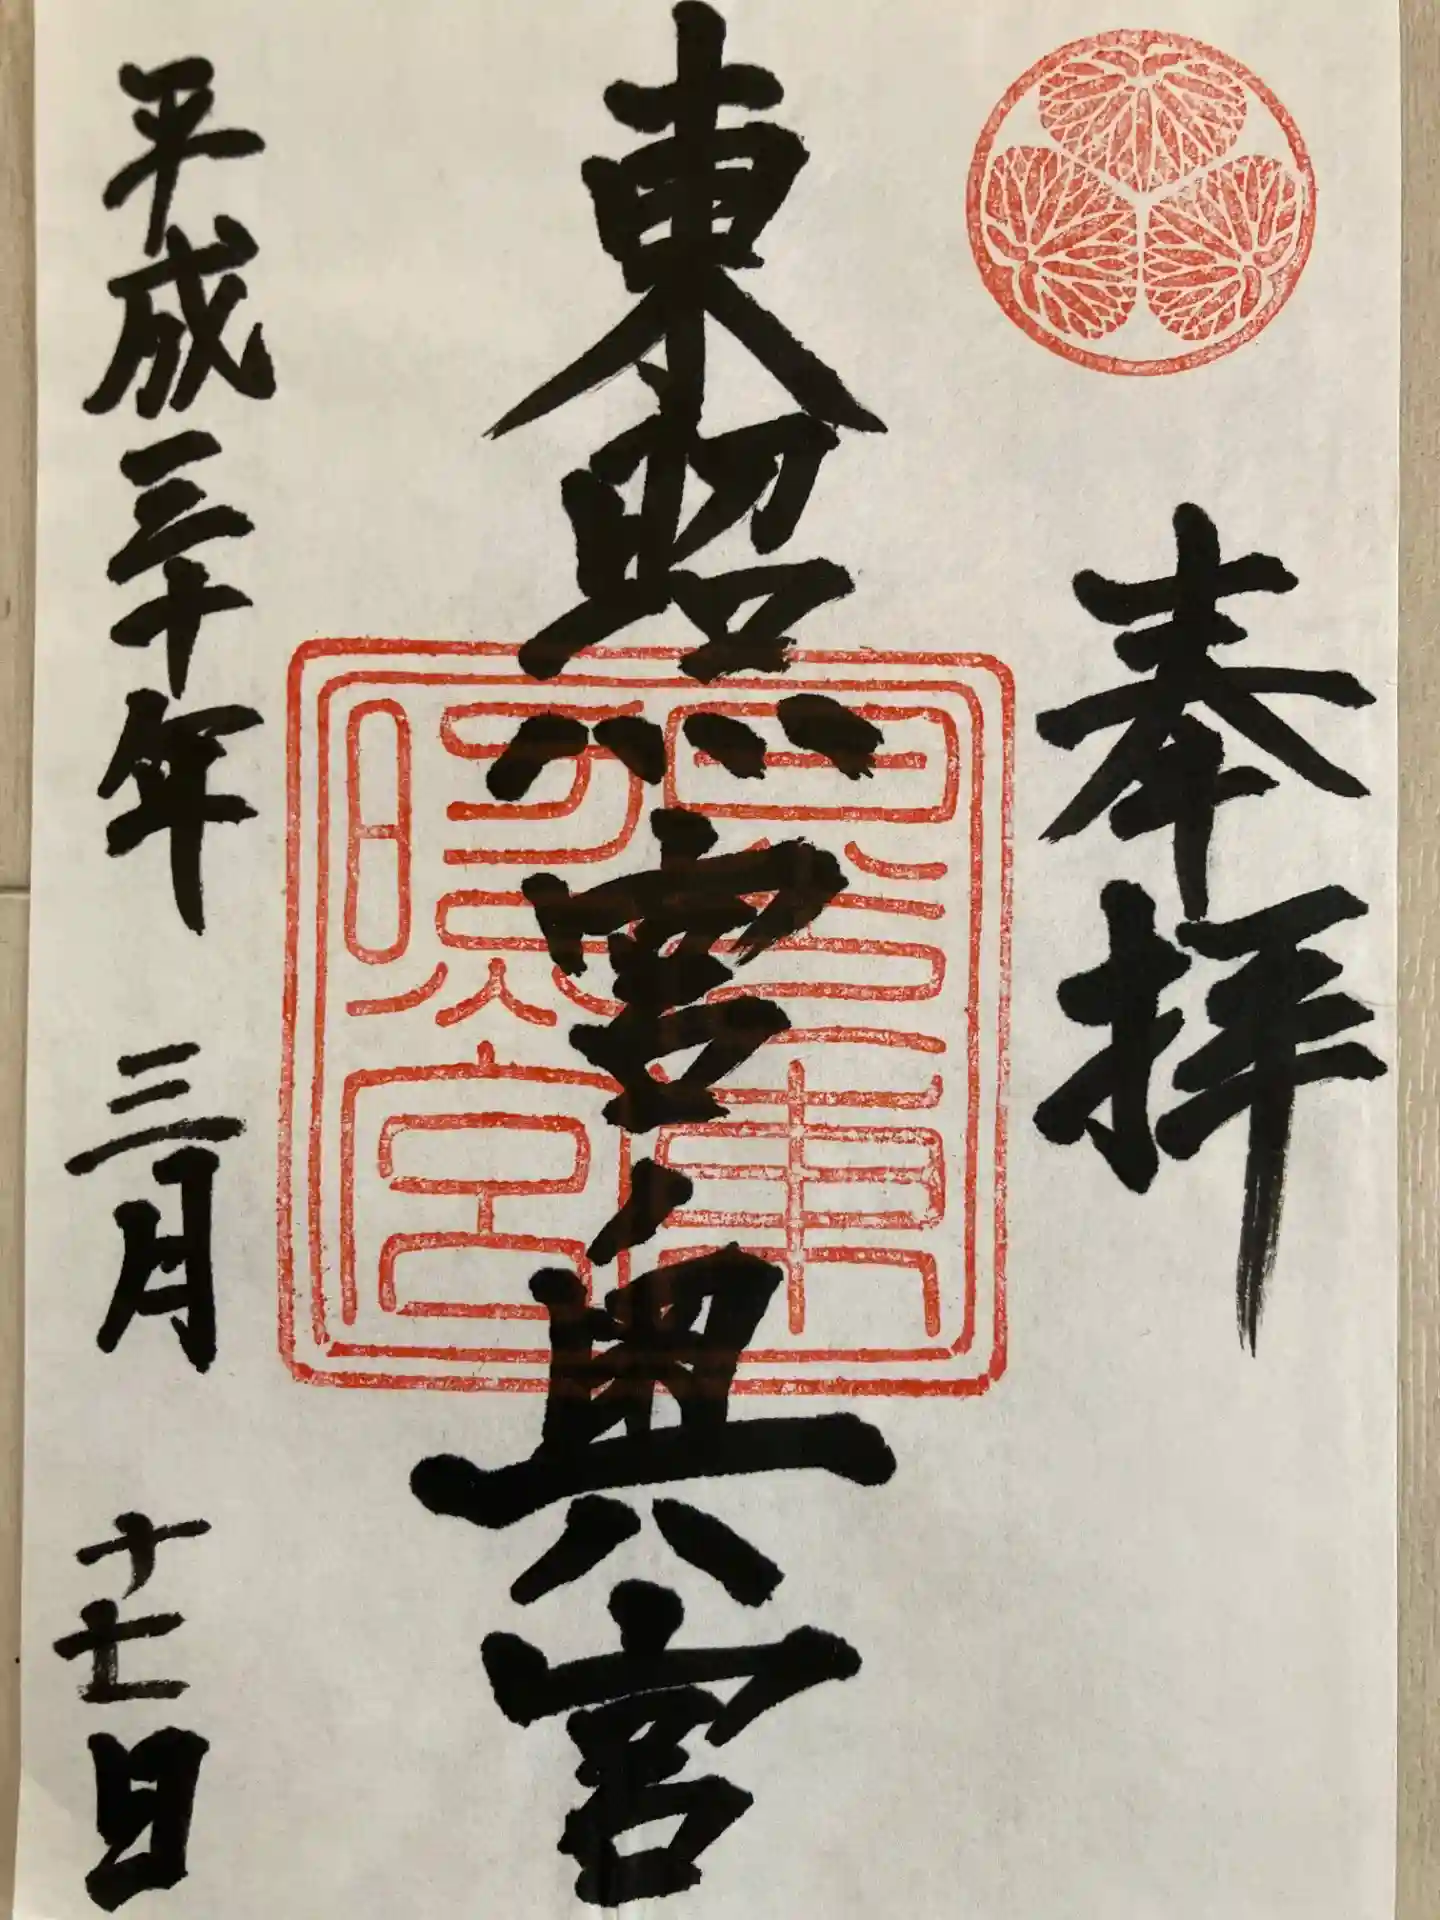 奉拝
東照宮奥宮
平成三十年 三月 十七日